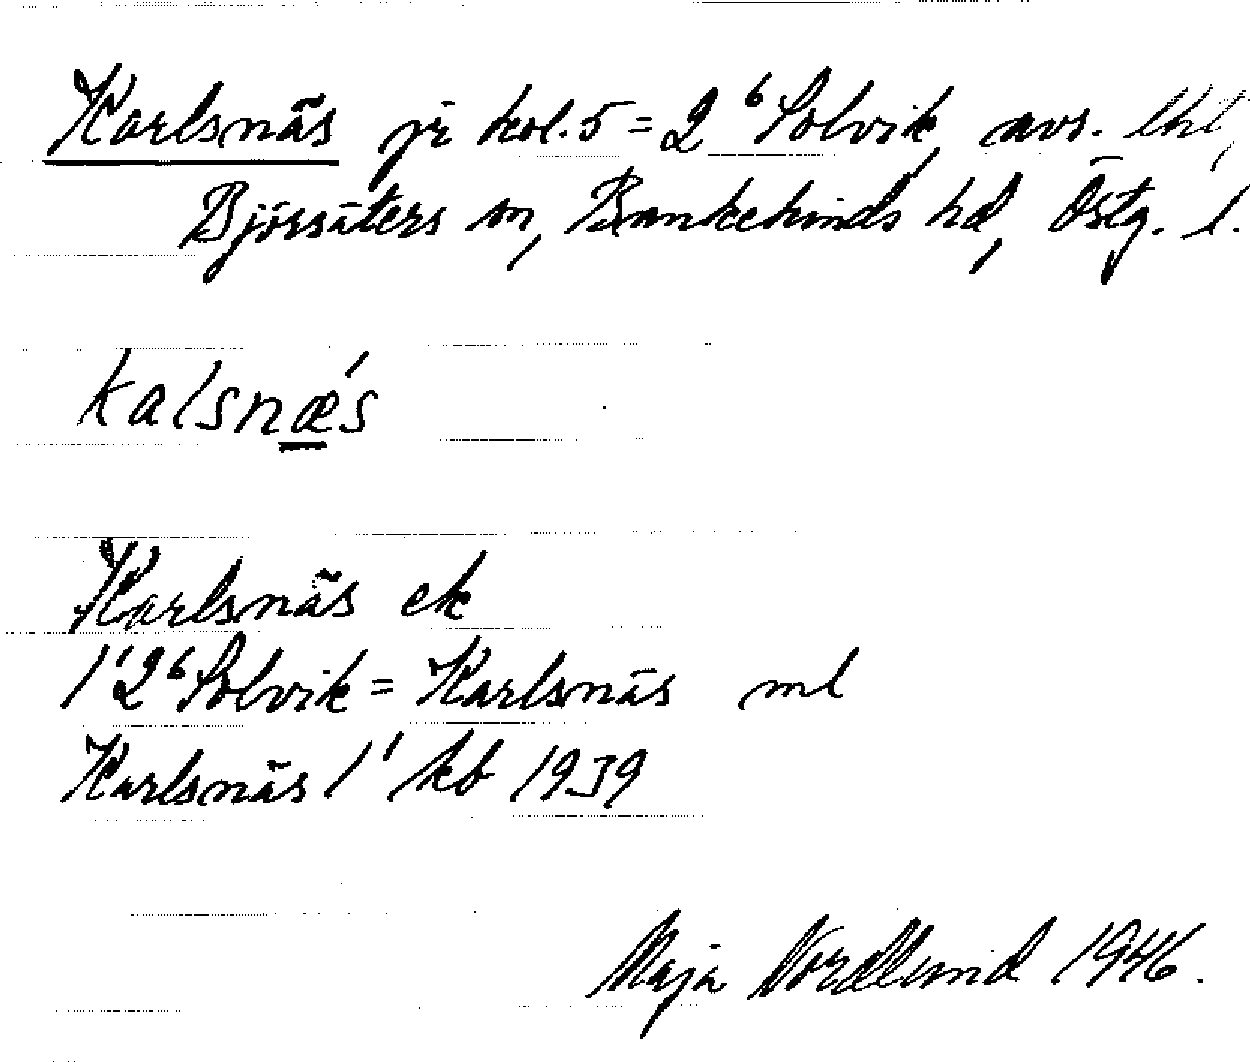 Karlsnäs jr kol. 5 = 2⁶ Solvik, avs. lht,
Björsäters sn, Bankekinds hd, Östg. l.
kalsnæ´s
Karlsnäs ek
1¹2⁶ Solvik = Karlsnäs ml
Karlsnäs 1¹ kb 1939
Maja Nordlund 1946.